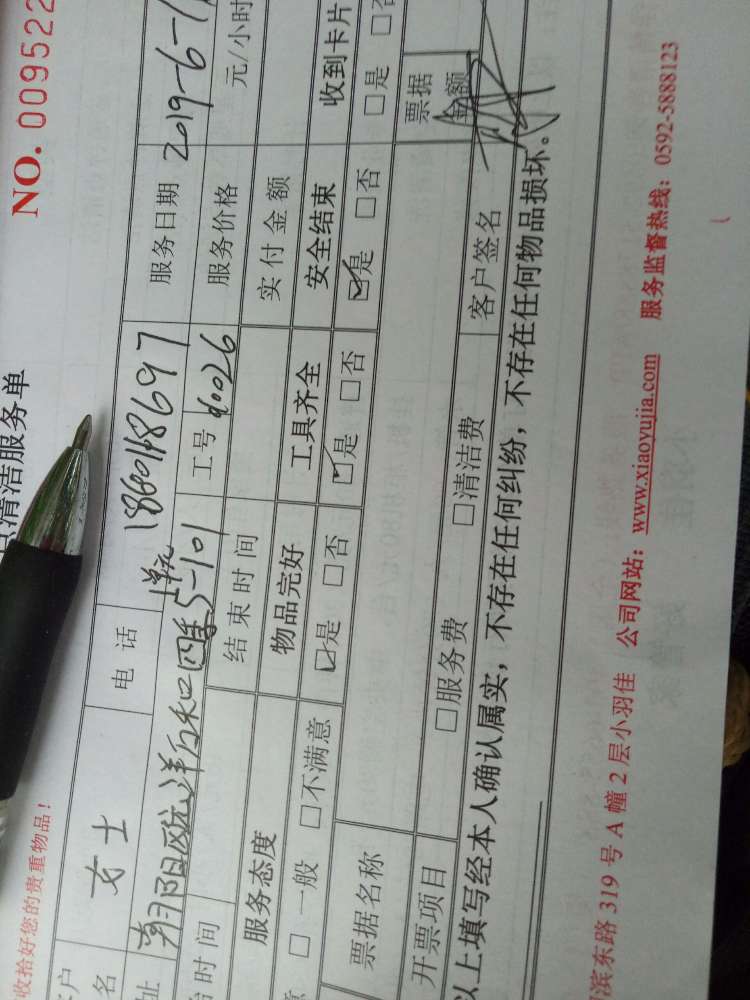 收拾好您的贵重物品！
清洁服务单
NO. 009522
女士 电话 18601148697 服务日期 2019-6-1
朝阳区远洋万和四季5-101 工号 服务价格 元/小时
始时间 结束时间 实付金额
服务态度 物品完好 工具齐全 安全结束 收到卡片
□一般 □不满意 □是 □否 □是 □否 □是 □否 □是
票据名称 票据金额
开票项目 □服务费 □清洁费 客户签名
以上填写经本人确认属实，不存在任何纠纷，不存在任何物品损坏。
滨东路319号A幢2层小羽佳 公司网站：www.xiaoyujia.com 服务监督热线：0592-5888123